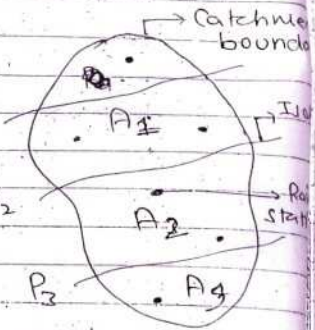 Catchme
bounda
A1
Iso
Rai
stati
2
A2
P3
A4